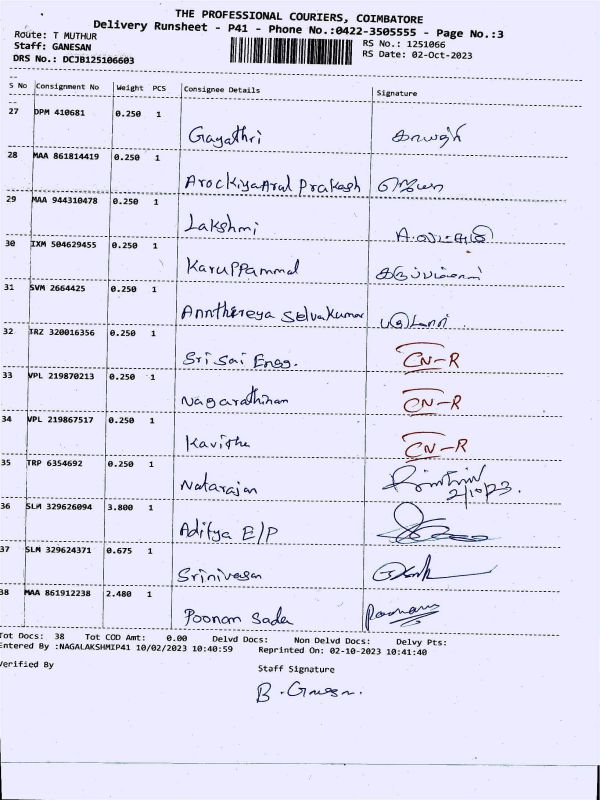 THE PROFESSIONAL COURIERS, COIMBATORE
Delivery Runsheet - P41 - Phone No.:0422-3505555 - Page No.:3
Route: T MUTHUR
RS No.: 1251066
Staff: GANESAN
RS Date: 02-Oct-2023
DRS No.: DCJB125106603
S No Consignment No Weight PCS Consignee Details Signature
27 DPM 410681 0.250 1
Gayathri காயத்ரி
28 MAA 861814419 0.250 1
Arockiya Aral Prakash
29 MAA 944310478 0.250 1
Lakshmi
30 IXM 504629455 0.250 1
Karuppammal
31 SVM 2664425 0.250 1
Selvakumar
32 TRZ 320016356 0.250 1
Sri Sai Engg. CN-R
33 VPL 219870213 0.250 1
CN-R
34 VPL 219867517 0.250 1
Kavitha CN-R
35 TRP 6354692 0.250 1
Natarajan 2/10/23.
36 SLM 329626094 3.800 1
Aditya E/P
37 SLM 329624371 0.675 1
Srinivasan
38 MAA 861912238 2.480 1
Poonam Sada
Tot Docs: 38 Tot COD Amt: 0.00 Delvd Docs: Non Delvd Docs: Delvy Pts:
Entered By :NAGALAKSHMIP41 10/02/2023 10:40:59 Reprinted On: 02-10-2023 10:41:40
Verified By Staff Signature